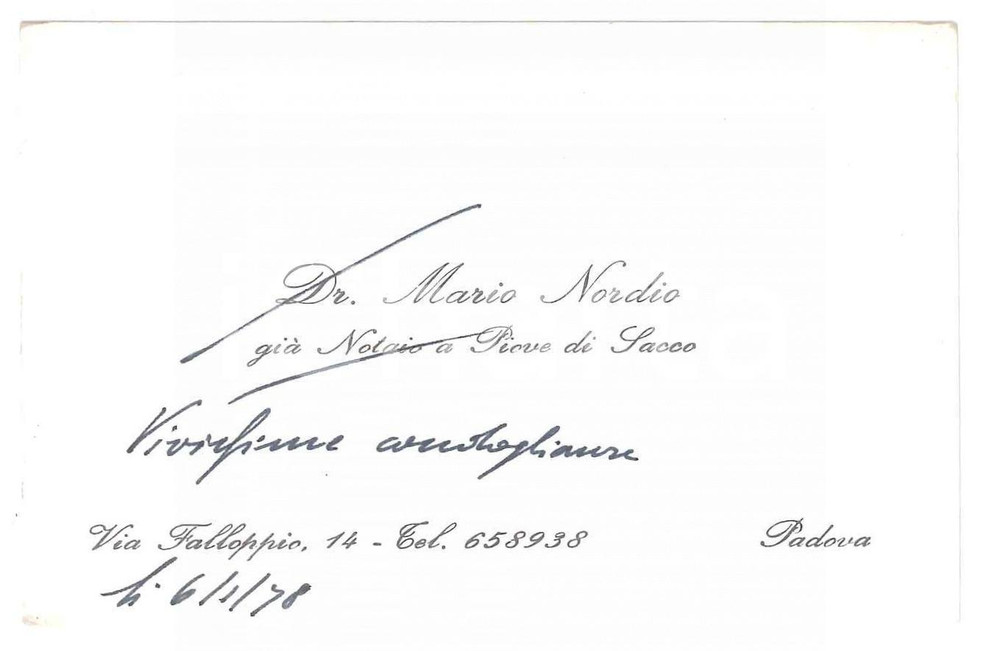 Dr. Mario Nordio
già Notaio a Piove di Sacco
Vivissime condoglianze
Via Falloppio, 14 - Tel. 658938 Padova
li 6/1/78